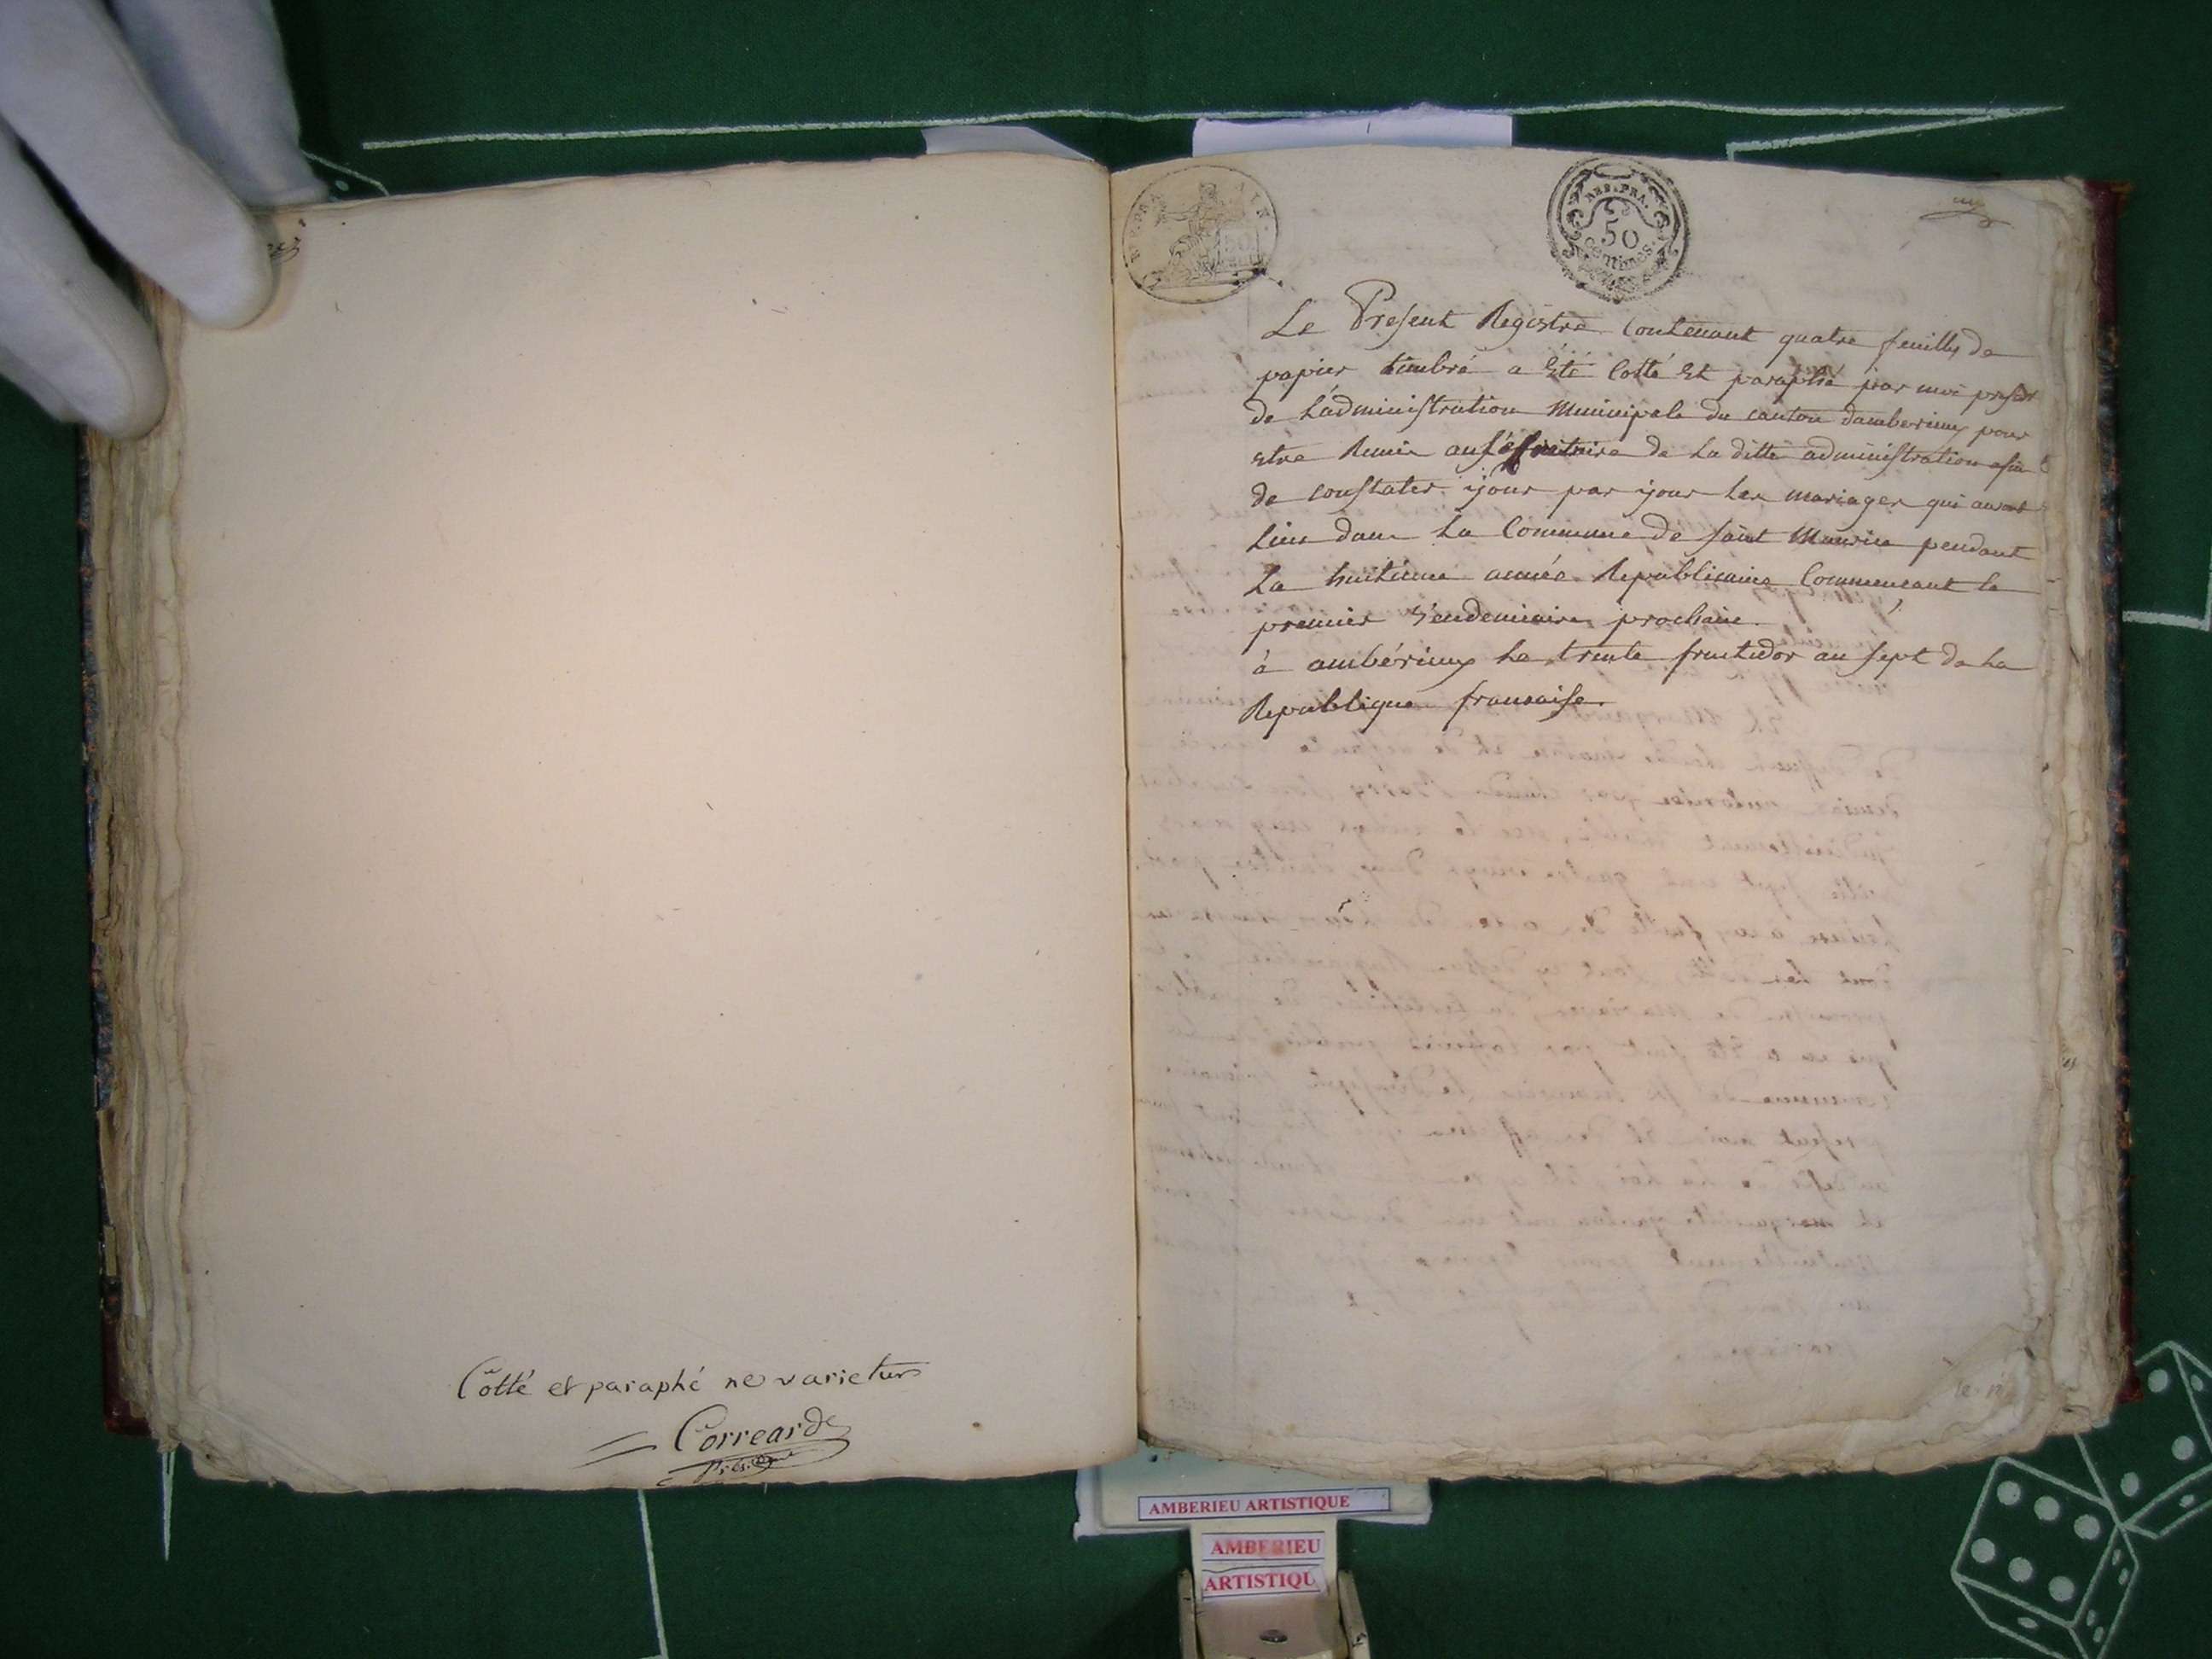 Cotté et paraphé ne varietur
Correard
Président
REP. FRA.
50
centimes.
Le Present Registre Contenant quatre feuilles de
papier timbré a Eté Cotté Et paraphé par moi presdt
de Ladministration Municipale du canton damberieux pour
etre Remis au secretaire de La ditte administration afin
de constater jour par jour Les mariages qui auront
Lieu dans La Commune de saint Maurice pendant
La huitieme année Republicaine Commencant le
premier Vendemiaire prochain.
à ambérieux Le trente fructidor an sept de La
Republique francaise.
AMBERIEU ARTISTIQUE
AMBERIEU
ARTISTIQU